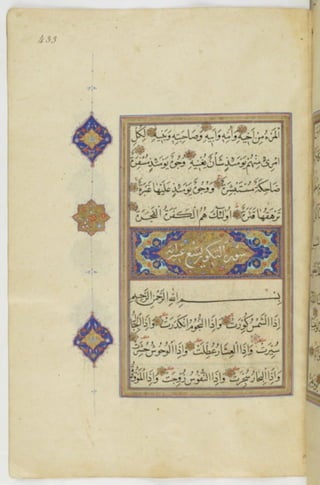 433
المرء من أخيه وأمه وأبيه وصاحبته وبنيه لكل
امرئ منهم يومئذ شأن يغنيه وجوه يومئذ مسفرة
ضاحكة مستبشرة ووجوه يومئذ عليها غبرة
ترهقها قترة أولئك هم الكفرة الفجرة
سورة التكوير تسع وعشرون آية
بسم الله الرحمن الرحيم
إذا الشمس كورت وإذا النجوم انكدرت وإذا الجبال
سيرت وإذا العشار عطلت وإذا الوحوش حشرت
وإذا البحار سجرت وإذا النفوس زوجت وإذا الموءودة